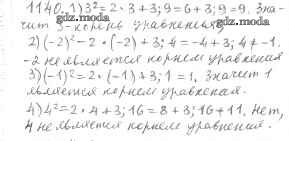 1140. 1) 3² = 2 · 3 + 3; 9 = 6 + 3; 9 = 9. Зна-
gdz.moda gdz.moda
чит 3 - корень уравнения.
2) (-2)² = 2 · (-2) + 3; 4 = -4 + 3; 4 ≠ -1.
-2 не является корнем уравнения
3) (-1)² = 2 · (-1) + 3; 1 = 1, Значит 1
является корнем уравнения.
4) 4² = 2 · 4 + 3; 16 = 8 + 3; 16 ≠ 11. Нет,
4 не является корнем уравнения.
gdz.moda gdz.moda